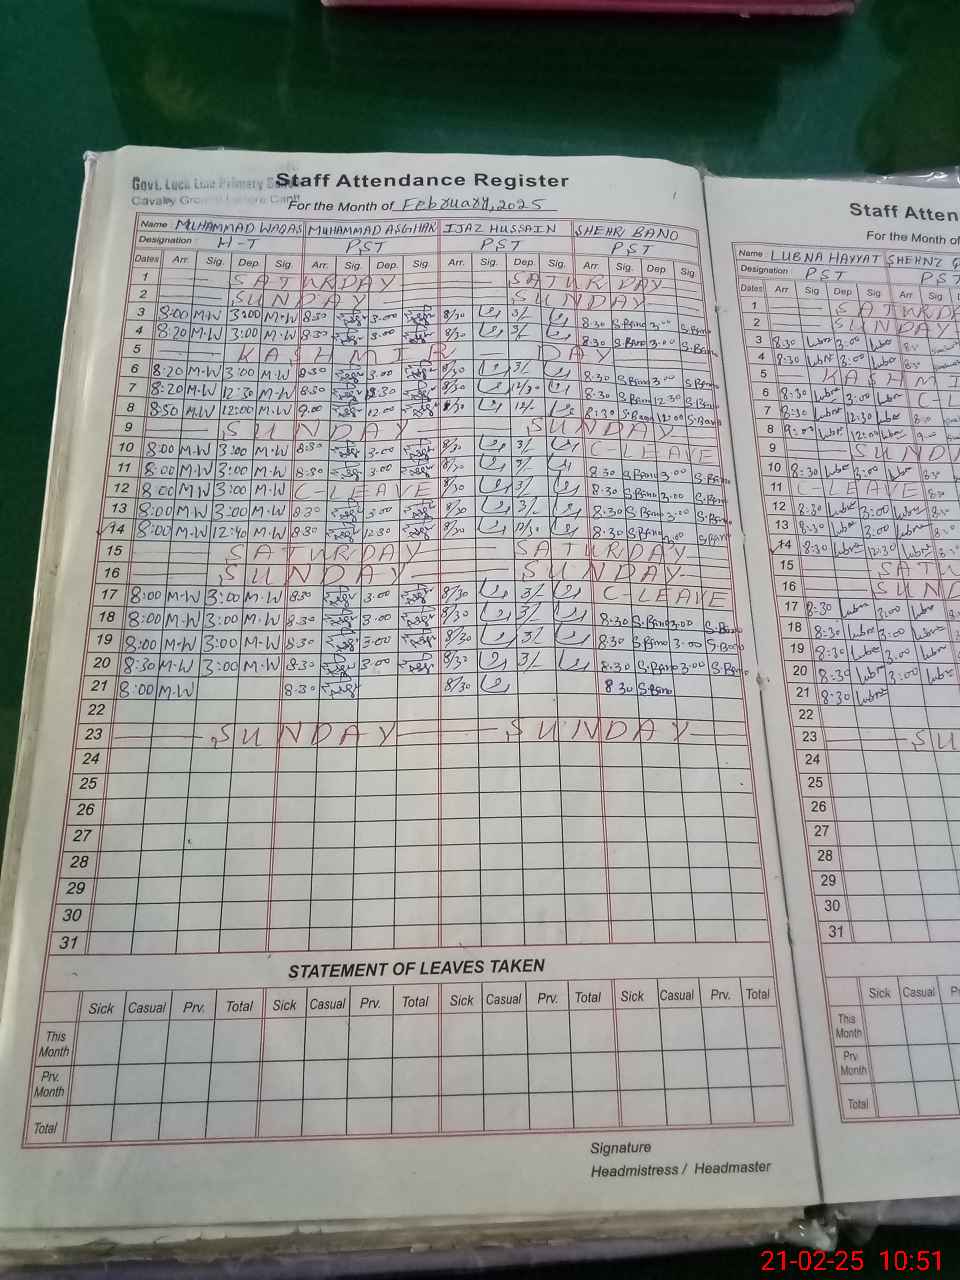 Govt. Lock Line Primary
Staff Attendance Register
Cavalry Ground Lahore Cantt
For the Month of February, 2025
Name MUHAMMAD WAQAS MUHAMMAD ASGHAR IJAZ HUSSAIN SHEHR BANO
Designation : H-T PST PST PST
Dates Arr. Sig. Dep. Sig. Arr. Sig. Dep. Sig. Arr. Sig. Dep. Sig. Arr. Sig. Dep. Sig.
1 SATURDAY SATURDAY
2 SUNDAY SUNDAY
3 8:00 M-W 3:00 M-W 8:30 3:00 8/30 3/- 8:30 S.Bano 3:00 S.Bano
4 8:20 M-W 3:00 M-W 8:30 3:00 8/30 3/- 8:30 S.Bano 3:00 S.Bano
5 KASHMIR DAY
6 8:20 M-W 3:00 M-W 8:30 3:00 8/30 3/- 8:30 S.Bano 3:00 S.Bano
7 8:20 M-W 12:30 M-W 8:30 12:30 8/30 12/30 8:30 S.Bano 12:30 S.Bano
8 8:50 M-W 12:00 M-W 9:00 12:00 12/- 8:30 S.Bano 12:00 S.Bano
9 SUNDAY SUNDAY
10 8:00 M-W 3:00 M-W 8:30 3:00 8/30 3/- C-LEAVE
11 8:00 M-W 3:00 M-W 8:30 3:00 8/30 3/- 8:30 S.Bano 3:00 S.Bano
12 8:00 M-W 3:00 M-W C-LEAVE 8/30 3/- 8:30 S.Bano 3:00 S.Bano
13 8:00 M-W 3:00 M-W 8:30 3:00 8/30 3/- 8:30 S.Bano 3:00 S.Bano
14 8:00 M-W 12:40 M-W 8:30 12:30 8/30 8:30 S.Bano 3:00 S.Bano
15 SATURDAY SATURDAY
16 SUNDAY SUNDAY
17 8:00 M-W 3:00 M-W 8:30 3:00 8/30 3/- C-LEAVE
18 8:00 M-W 3:00 M-W 8:30 3:00 8/30 3/- 8:30 S.Bano 3:00 S.Bano
19 8:00 M-W 3:00 M-W 8:30 3:00 8/30 3/- 8:30 S.Bano 3:00 S.Bano
20 8:30 M-W 3:00 M-W 8:30 3:00 8/30 3/- 8:30 S.Bano 3:00 S.Bano
21 8:00 M-W 8:30 8/30 8 30 S.Bano
22
23 SUNDAY SUNDAY
24
25
26
27
28
29
30
31
STATEMENT OF LEAVES TAKEN
Sick Casual Prv. Total Sick Casual Prv. Total Sick Casual Prv. Total Sick Casual Prv. Total
This Month
Prv. Month
Total
Signature
Headmistress / Headmaster
Staff Atten
For the Month of
Name LUBNA HAYYAT SHEHNZ
Designation PST PST
Dates Arr Sig. Dep Sig. Arr. Sig.
1 SATURDA
2 SUNDAY
3 8:30 Lubna 3:00 Lubna
4 8:30 Lubna 3:00 Lubna
5 KASHMI
6 8:30 Lubna 3:00 Lubna C-L
7 8:30 Lubna 12:30 Lubna
8 9:00 Lubna 12:00 Lubna 9:00
9 SUND
10 8:30 Lubna 3:00 Lubna 8:30
11 C-LEAVE 8:30
12 8:30 Lubna 3:00 Lubna 8:30
13 8:30 Lubna 3:00 Lubna 8:30
14 8:30 Lubna 12:30 Lubna 8:30
15 SATU
16 SUND
17 8:30 Lubna 3:00 Lubna
18 8:30 Lubna 3:00 Lubna
19 8:30 Lubna 3:00 Lubna
20 8:30 Lubna 3:00 Lubna
21 8:30 Lubna
22
23 SU
24
25
26
27
28
29
30
31
Sick Casual
This Month
Prv Month
Total
21-02-25 10:51